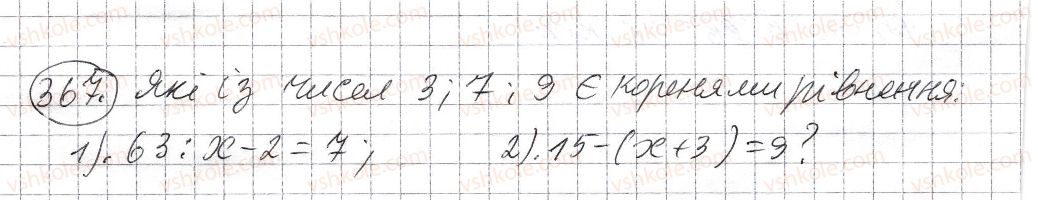 367. Які із чисел 3; 7; 9 є коренями рівнення:
1). 63 : x - 2 = 7; 2). 15 - (x + 3) = 9?